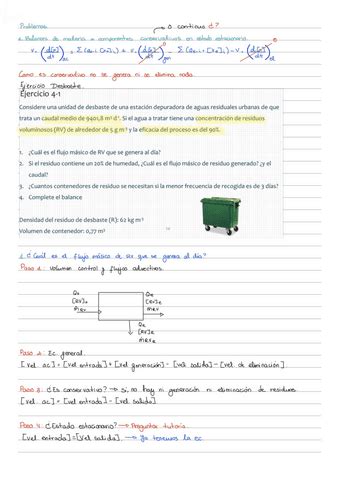 Problemas. → o continuo d.?
Balances de materia a componentes conservativos en estado estacionario.
Como es conservativo no se genera ni se elimina nada.
Ejercicio Desbaste.
Ejercicio 4-1
Considere una unidad de desbaste de una estación depuradora de aguas residuales urbanas de que
trata un caudal medio de 9401,8 m³ d⁻¹. Si el agua a tratar tiene una concentración de residuos
voluminosos (RV) de alrededor de 5 g m⁻³ y la eficacia del proceso es del 90%.
1. ¿Cuál es el flujo másico de RV que se genera al día?
2. Si el residuo contiene un 20% de humedad, ¿Cuál es el flujo másico de residuo generado? ¿y el
caudal?
3. ¿Cuantos contenedores de residuo se necesitan si la menor frecuencia de recogida es de 3 días?
4. Complete el balance
Densidad del residuo de desbaste (R): 62 kg m⁻³
Volumen de contenedor: 0,77 m³
1. ¿Cuál es el flujo másico de que se genera al día?
Paso 1: Volumen control y flujos advectivos.
Paso 2: Ec. general.
[Vel. ac] = [vel entrada] + [vel generación] - [vel salida] - [vel. de eliminación]
Paso 3: ¿Es conservativo? → Sí, no hay ni generación ni eliminación de residuos
[Vel. ac] = [vel entrada] - [vel salida]
Paso 4: ¿Estado estacionario? → Preguntar tutoría.
[Vel. entrada] = [Vel salida] → Ya tenemos la ec.